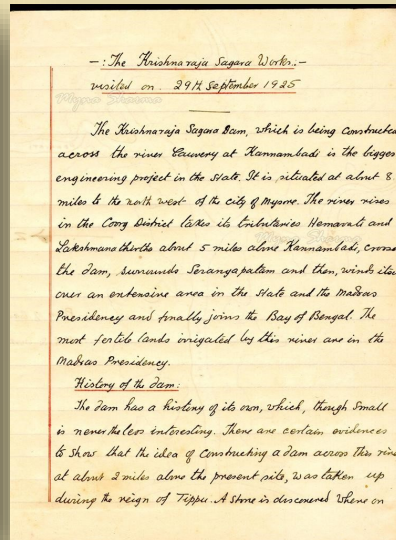 -: The Krishnaraja Sagara Works. :-
visited on 29th September 1925
The Krishnaraja Sagara Dam, which is being constructed
across the river Cauvery at Kannambadi is the biggest
engineering project in the State. It is situated at about 8
miles to the north west of the city of Mysore. The river rises
in the Coorg District takes its tributaries Hemavati and
Lakshmanathirtha about 5 miles above Kannambadi, crosses
the dam, surrounds Serangapatam and then, winds itse
over an extensive area in the State and the Madras
Presidency and finally joins the Bay of Bengal. The
most fertile lands irrigated by this river are in the
Madras Presidency.
History of the dam:
The dam has a history of its own, which, though small
is never the less interesting. There are certain evidences
to show that the idea of constructing a dam across this rive
at about 2 miles above the present site, was taken up
during the reign of Tippu. A stone is discovered where on